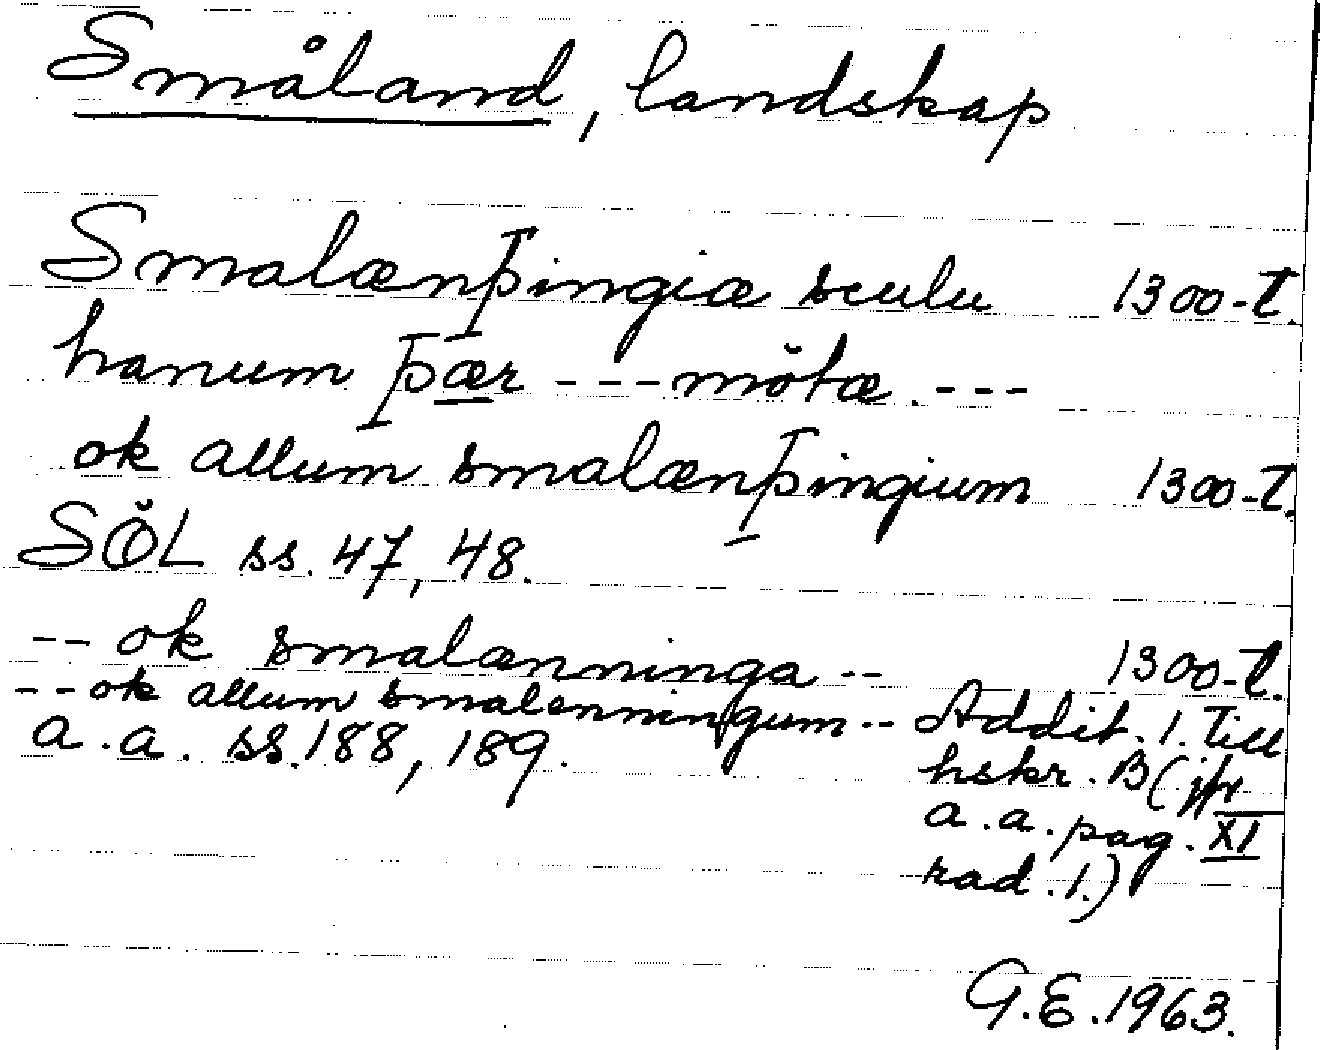 Småland, landskap
Smalænþingiæ sculu 1300-t.
hanum þær --- mötæ. ---
ok allum smalænþingium 1300-t.
SÖL ss. 47, 48.
-- ok smalænninga -- 1300-t.
-- ok allum smalenningum -- Addit. 1. till
a.a. ss. 188, 189. hskr. B (jfr
a.a. pag. XI
rad. 1.)
G.E. 1963.